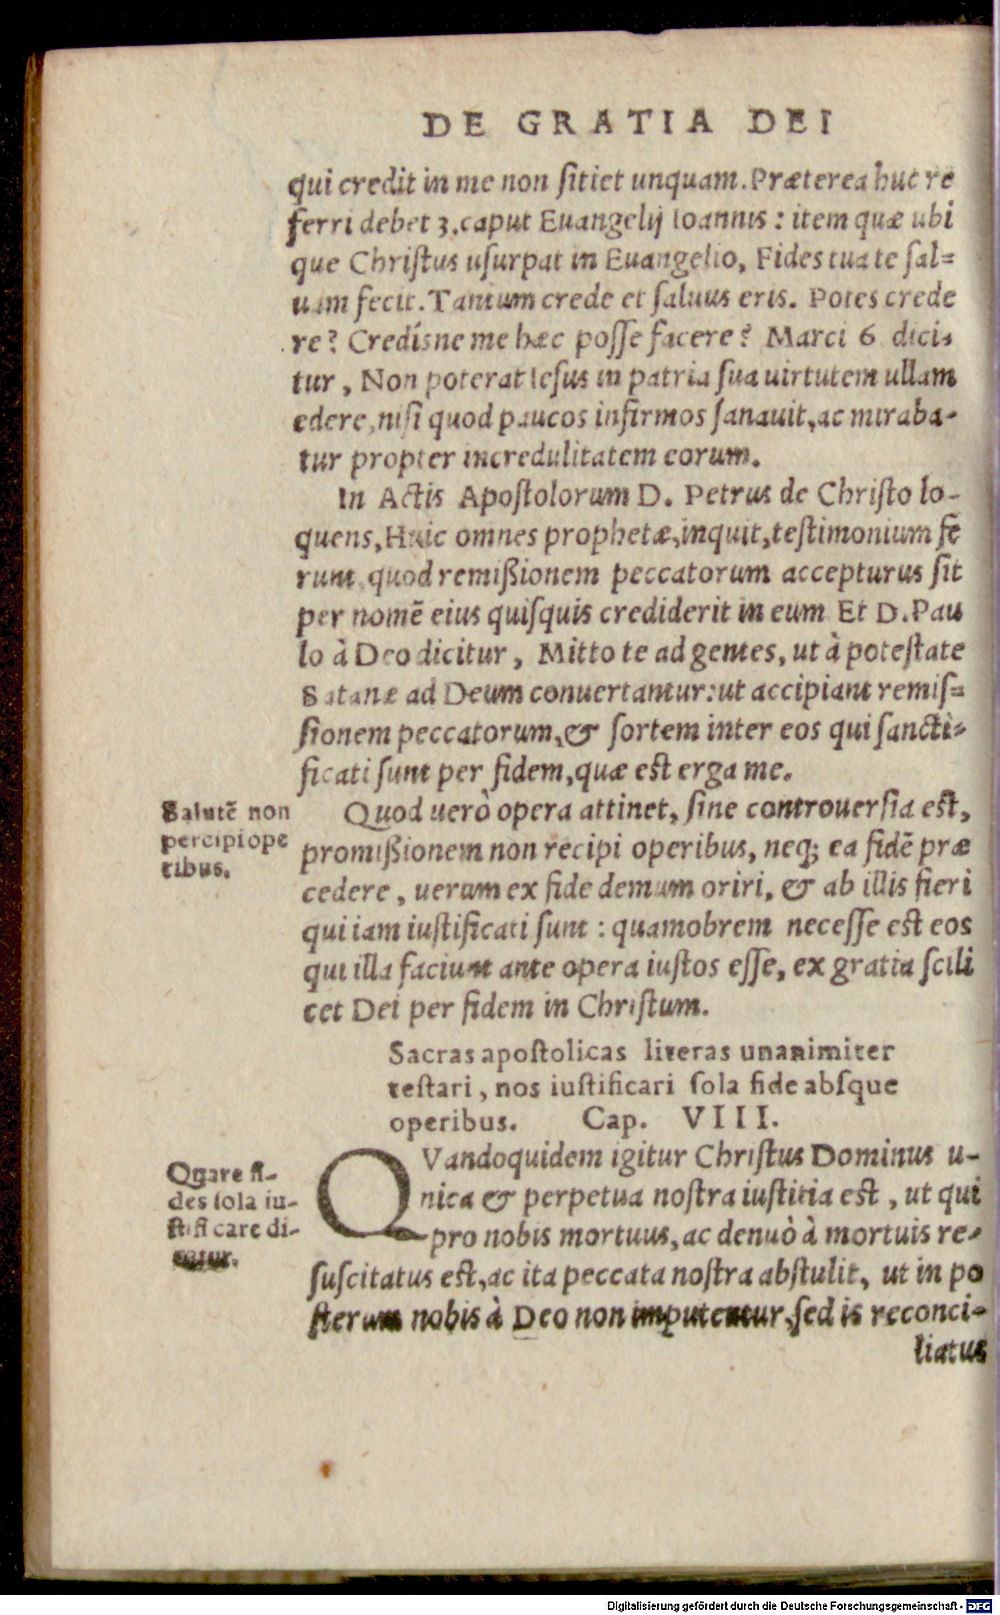 DE GRATIA DEI
qui credit in me non sitiet unquam. Præterea huc re
ferri debet 3. caput Euangelij Ioannis: item quæ ubi
que Christus usurpat in Euangelio, Fides tua te sal-
uum fecit. Tantum crede et saluus eris. Potes crede
re? Credísne me hæc posse facere? Marci 6 dici-
tur, Non poterat Iesus in patria sua uirtutem ullam
edere, nisi quod paucos infirmos sanauit, ac miraba-
tur propter incredulitatem eorum.
In Actis Apostolorum D. Petrus de Christo lo-
quens, Huic omnes prophetæ, inquit, testimonium fe
runt quod remißionem peccatorum accepturus sit
per nomē eius quisquis crediderit in eum Et D. Pau
lo à Deo dicitur, Mitto te ad gentes, ut à potestate
Satanæ ad Deum conuertantur: ut accipiant remis-
sionem peccatorum, & sortem inter eos qui sancti-
ficati sunt per fidem, quæ est erga me.
Salutē non
percipi ope
ribus.
Quod uerò opera attinet, sine controuersia est,
promißionem non recipi operibus, neq; ea fidē præ
cedere, uerum ex fide demum oriri, & ab illis fieri
qui iam iustificati sunt: quamobrem necesse est eos
qui illa faciunt ante opera iustos esse, ex gratia scili
cet Dei per fidem in Christum.
Sacras apostolicas literas unanimiter
testari, nos iustificari sola fide absque
operibus. Cap. VIII.
Quare fi-
des sola iu-
stificare di-
catur.
QVandoquidem igitur Christus Dominus u-
nica & perpetua nostra iustitia est, ut qui
pro nobis mortuus, ac denuò à mortuis re-
suscitatus est, ac ita peccata nostra abstulit, ut in po
sterum nobis à Deo non imputentur, sed is reconci-
liatus
Digitalisierung gefördert durch die Deutsche Forschungsgemeinschaft - DFG